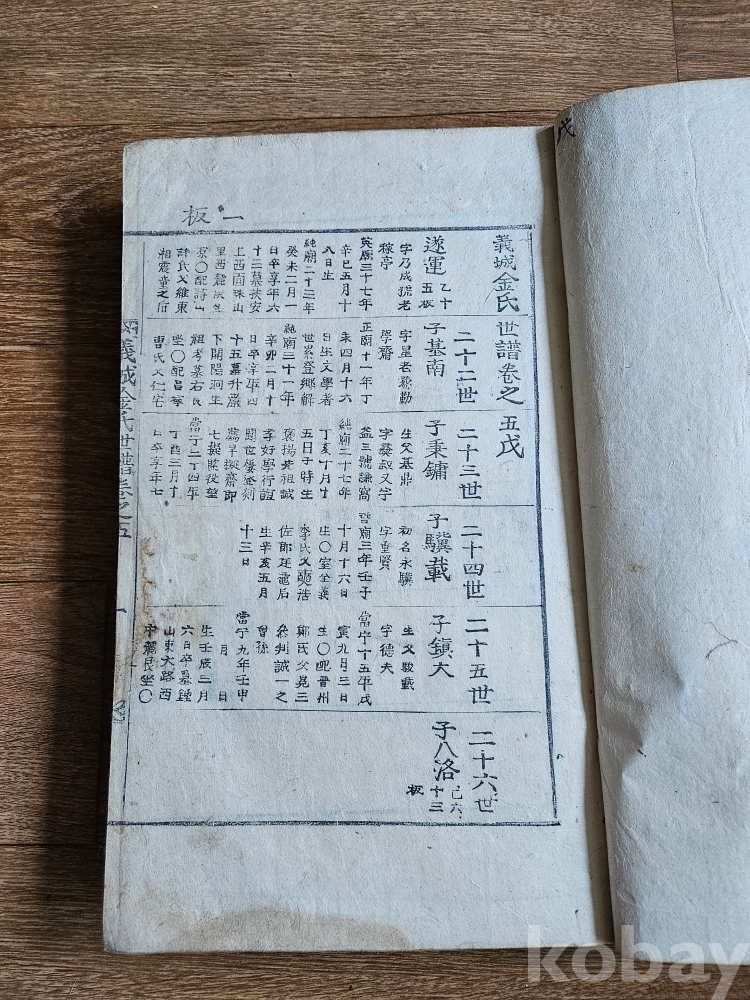 戊
一板
義城金氏世譜卷之五戊
遂運
乙十
五板
字乃成號老
稼亭
英廟三十七年
辛巳五月十
八日生
純廟二十三年
癸未二月一
日卒享年六
十三墓抉安
配許
許氏父維東
相震章之后
二十二世
子基南
字星老號勤
學齋
正廟十一年丁
未四月十六
日生文學著
世累登鄉解
純廟三十一年
辛卯二月十
日卒享年四
十五墓升嚴
下開陽洞生
祖考墓右艮
坐〇配昌寧
曺氏父仁宅
二十三世
子秉鏞
生父基鼎
字義叔又字
益三號謙窩
純廟二十七年
丁亥十月十
五日子時生
當宁二十四年
丁酉三月十
日卒享年七
二十四世
子驥載
初名永驥
字重賢
哲廟三年壬子
十月十六日
生〇室全義
李氏父
生辛亥五月
十三日
二十五世
子鎮大
生父駿載
字德夫
當宁十五年戊
寅九月三日
生〇配晋州
鄭氏父晃三
參判誠一之
曾孫
當宁九年壬申
月日
生壬辰二月
六日卒墓鍾
山東大路西
坐〇
二十六世
子八洛
己六
十三
板
義城金氏世譜卷之五
一
kobay